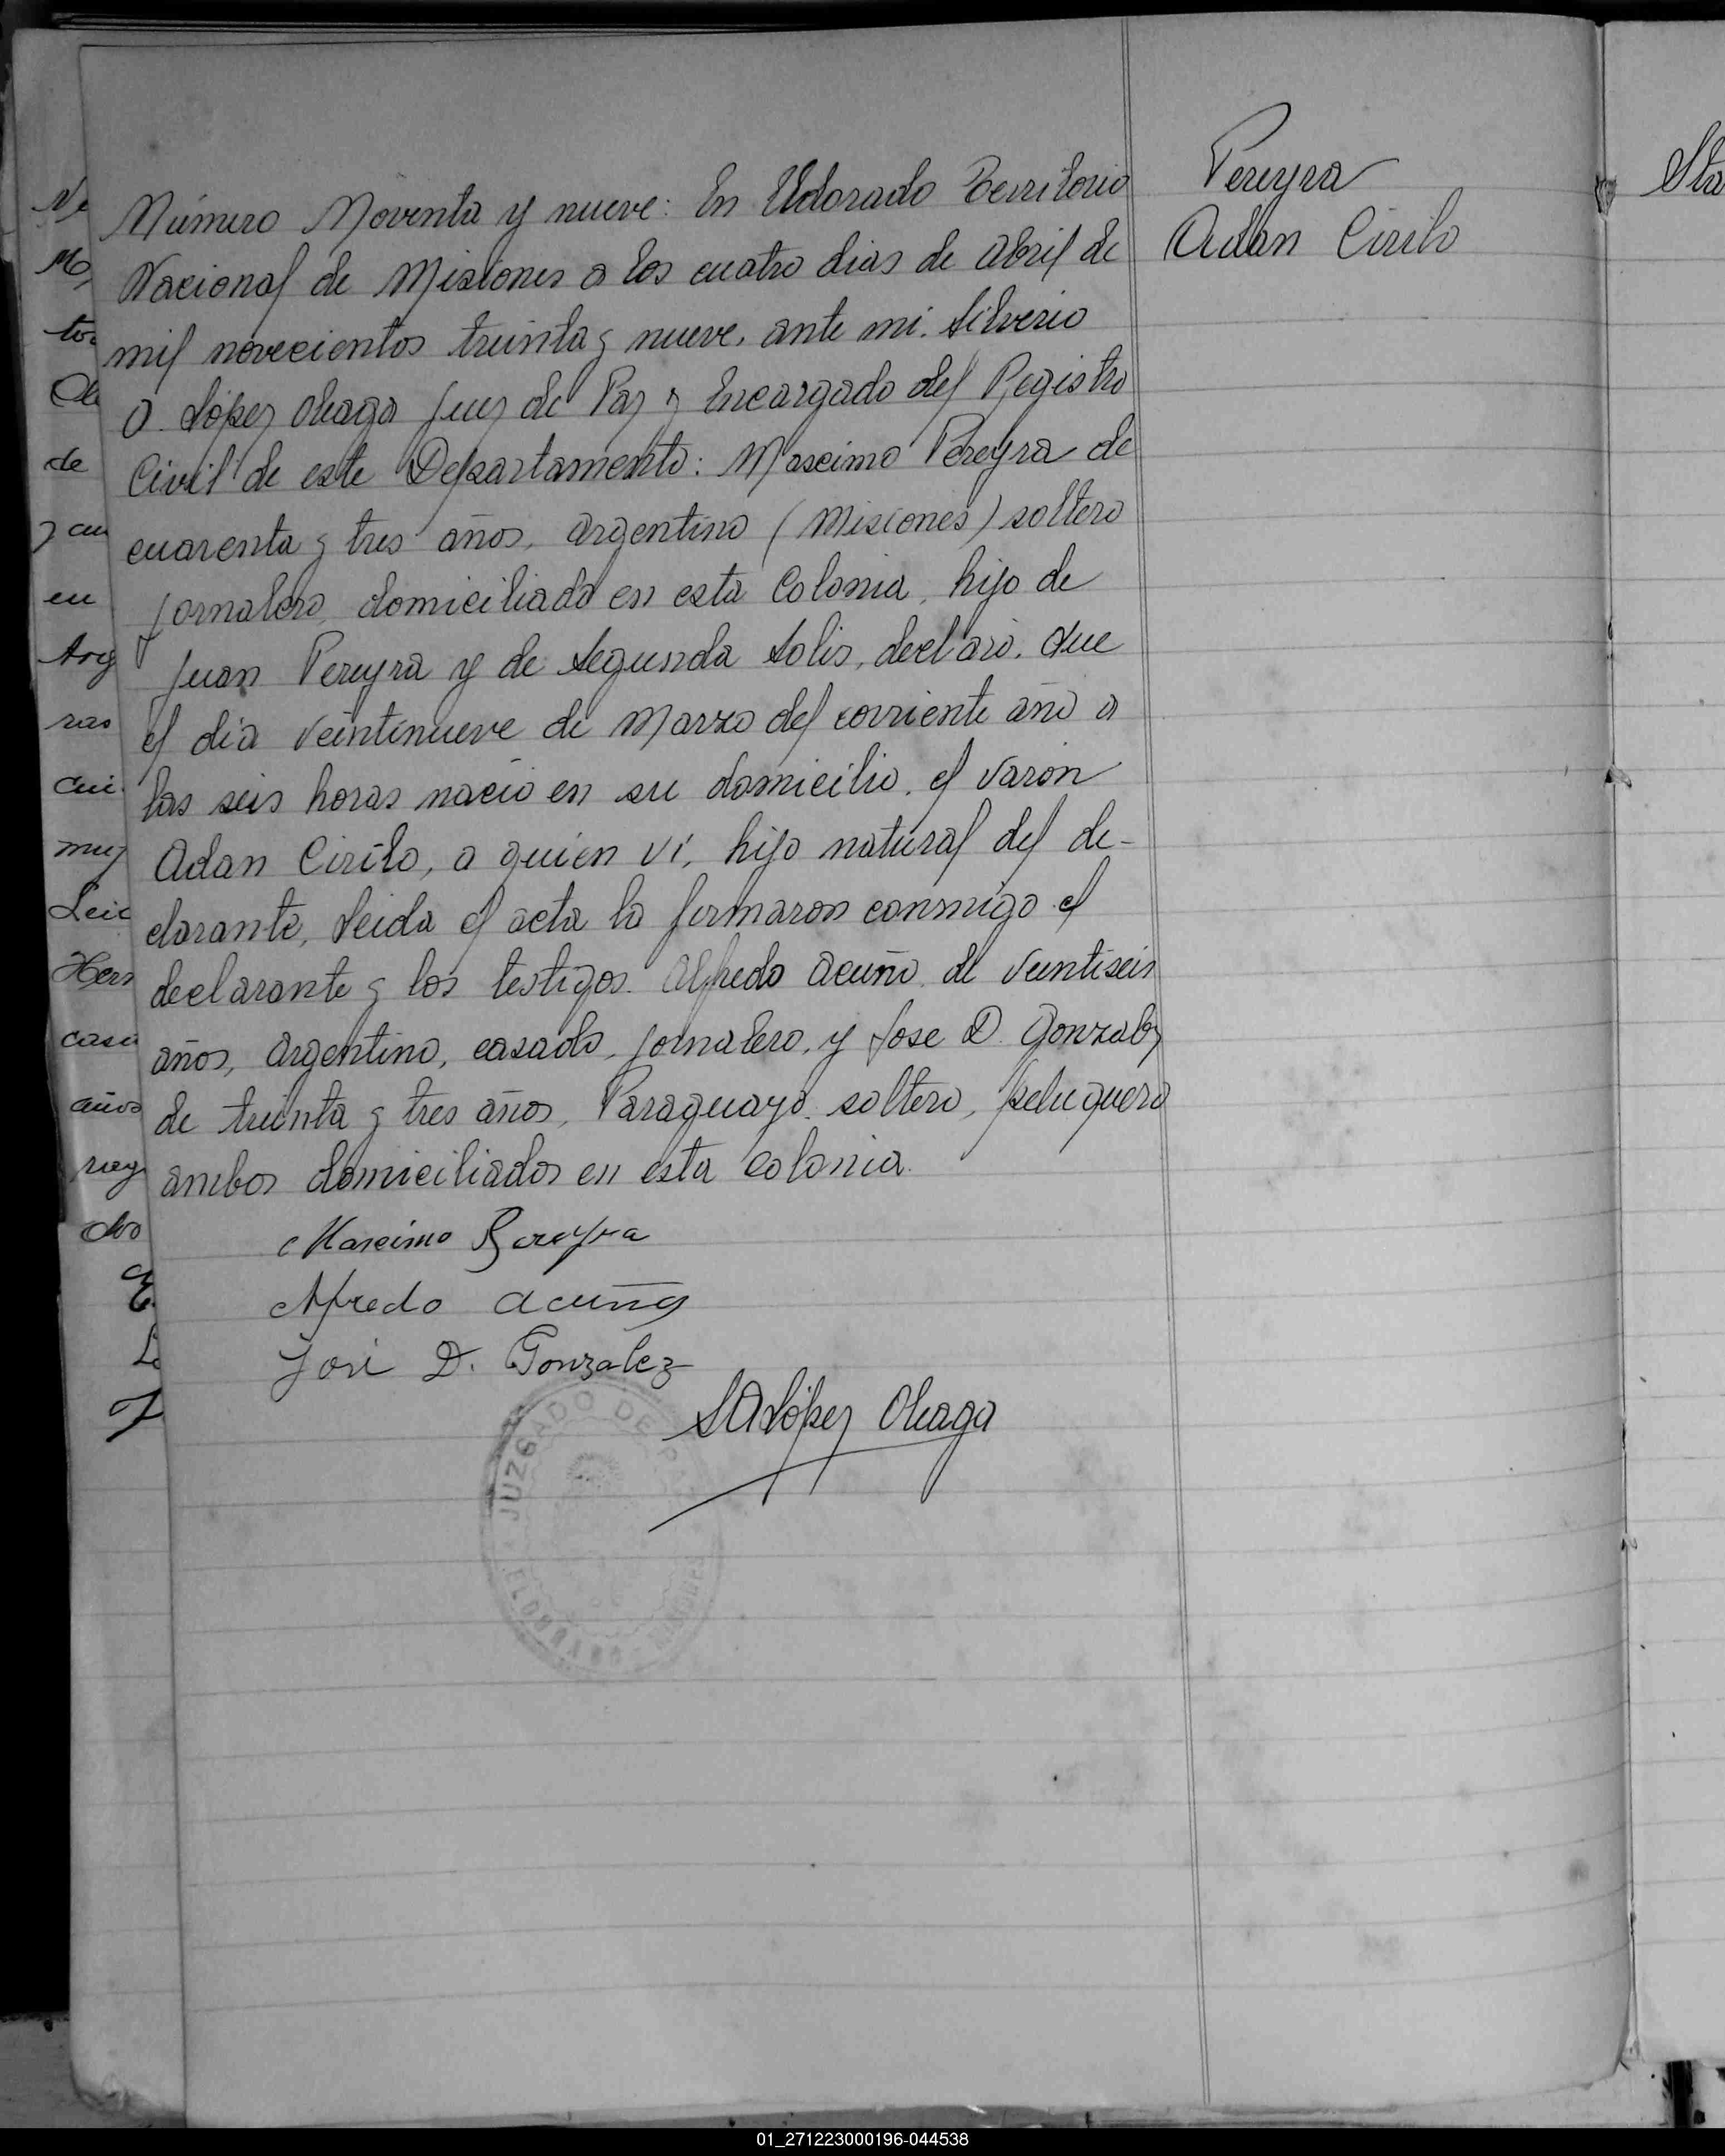 Pereyra
Adan Cirilo
Número Noventa y nueve: En Eldorado Territorio
Nacional de Misiones a los cuatro dias de Abril de
mil novecientos treinta y nueve, ante mi. Silverio
O. López Oleaga Juez de Paz y Encargado del Registro
Civil de este Departamento: Maximo Pereyra de
cuarenta y tres años, argentino (Misiones) soltero
jornalero, domiciliado en esta Colonia, hijo de
Juan Pereyra y de Segunda Solis, declaró. Que
el día veintinueve de Marzo del corriente año a
las seis horas nació en su domicilio, el varón
Adan Cirilo, a quien ví, hijo natural del de-
clarante, Leida el acta la firmaron conmigo el
declarante y los testigos. Alfredo Acuña, de veintiseis
años, argentino, casado, jornalero, y Jose D. Gonzalez
de treinta y tres años, Paraguayo, soltero, peluquero
ambos domiciliados en esta colonia.
Maximo Pereyra
Alfredo Acuña
José D. González
López Oleaga
JUZGADO DE PAZ
ELDORADO MISIONES
01_271223000196-044538